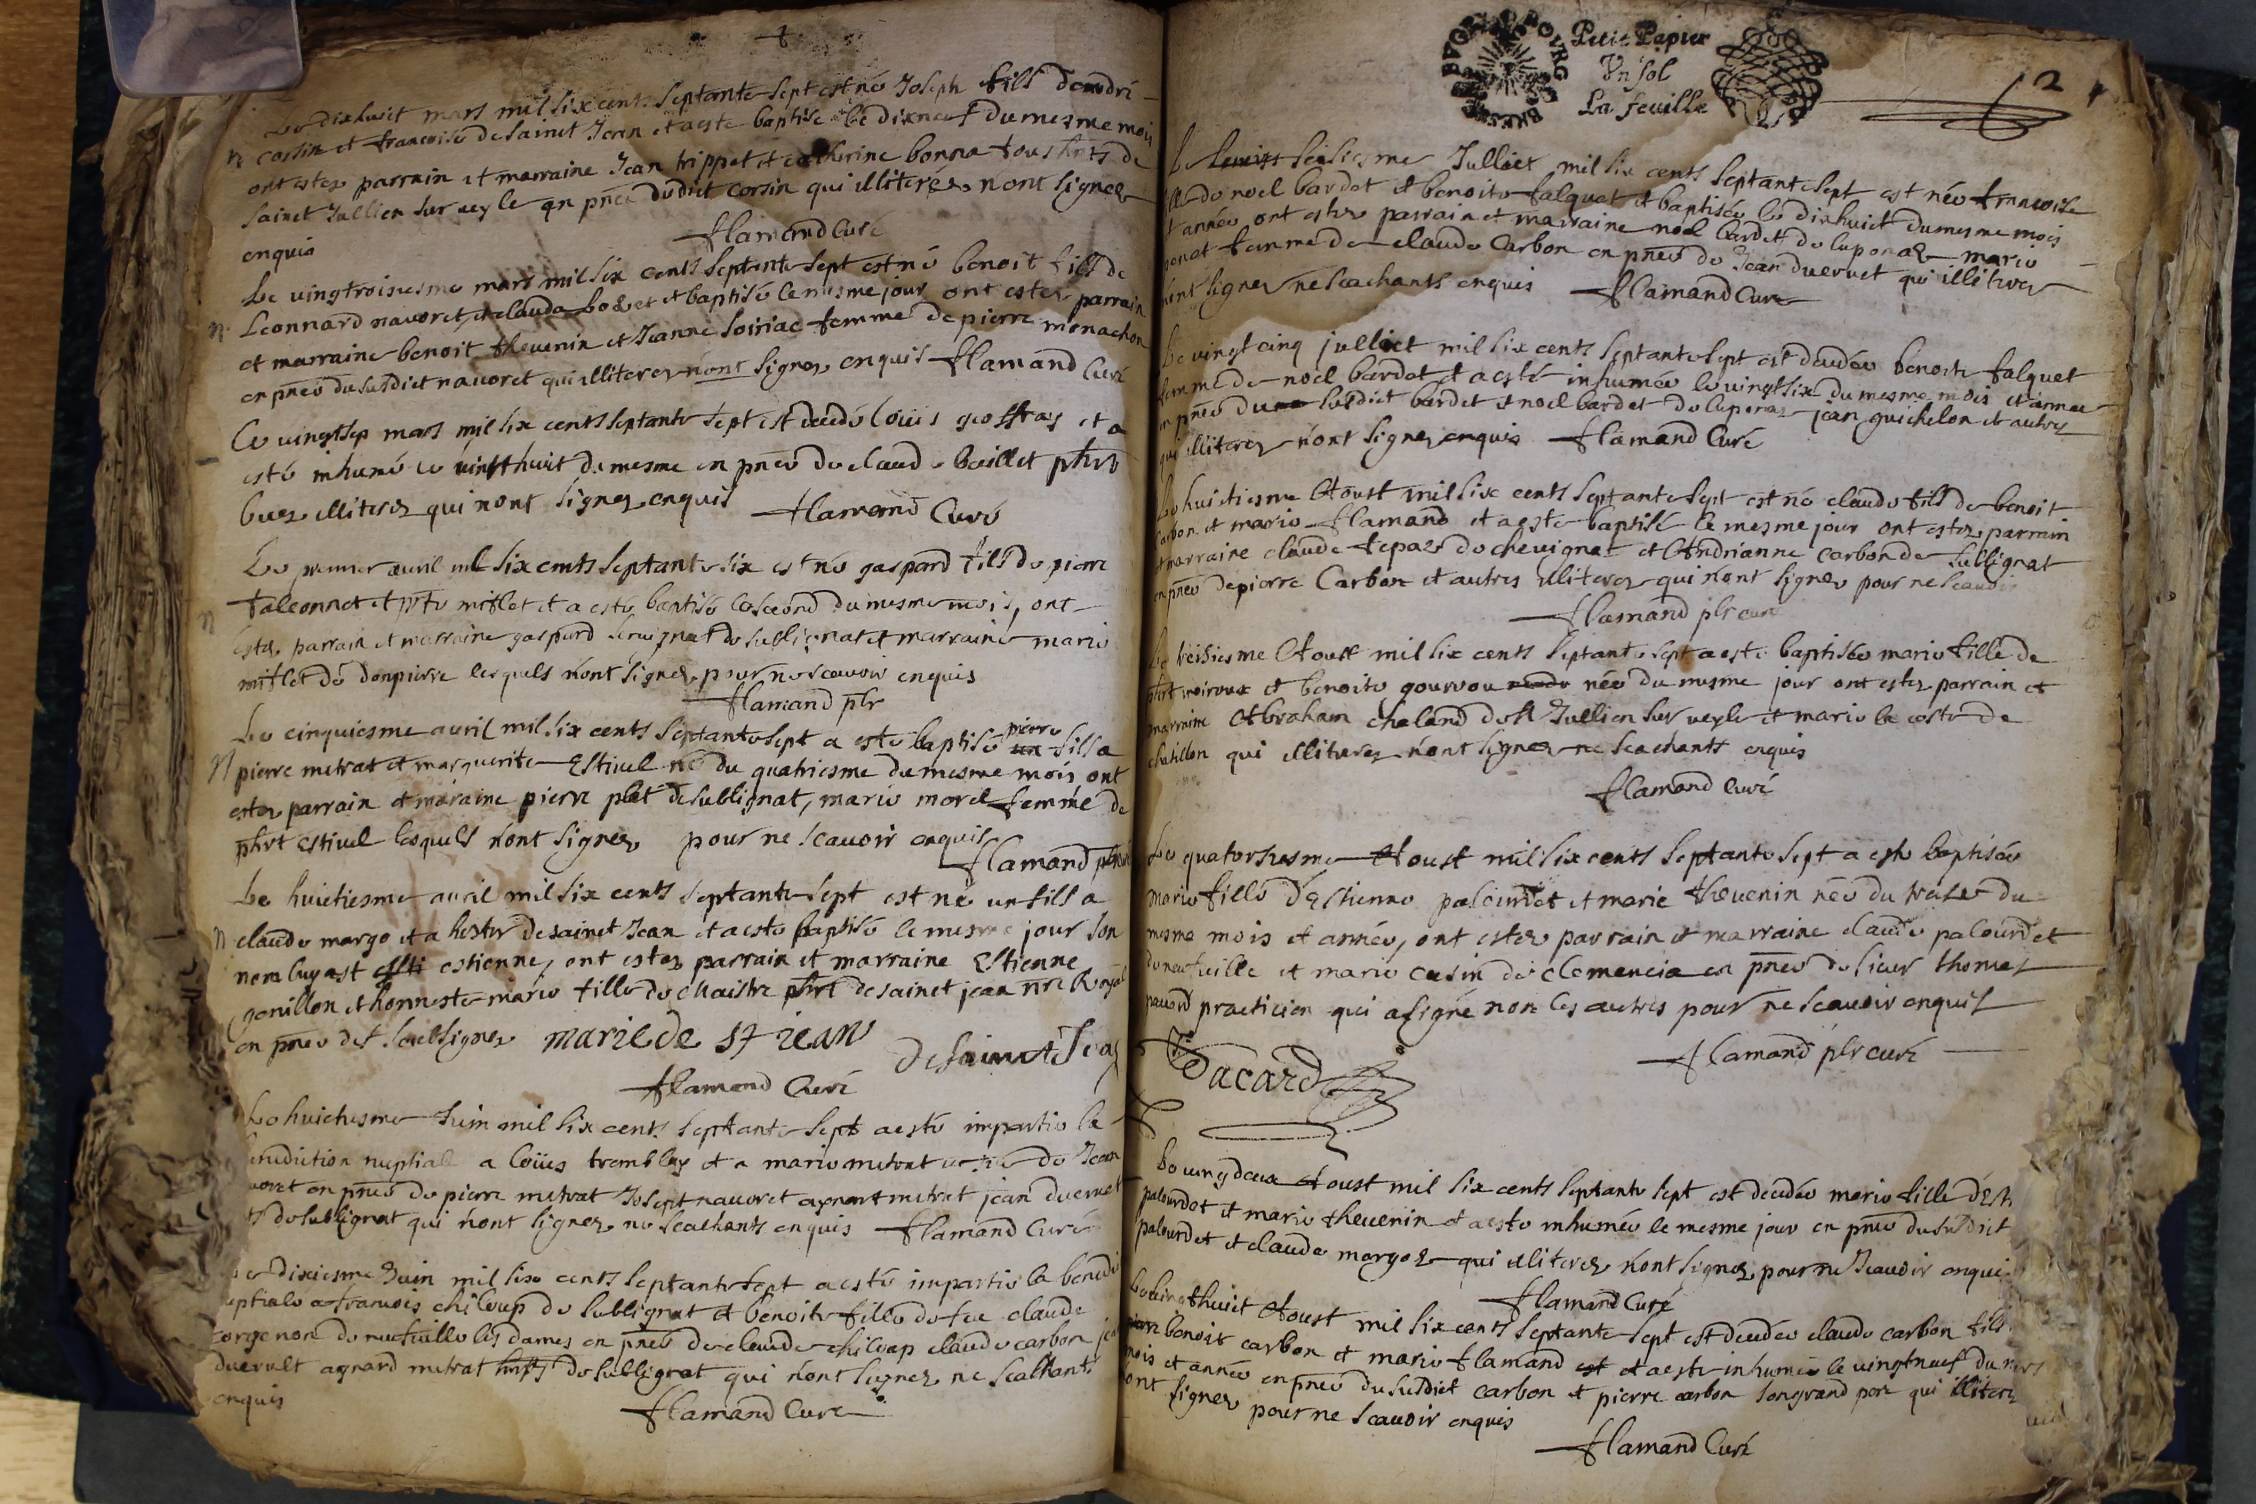 Le dixhuit mars mil six cents septante sept est né Joseph fils d'andri
n corsin et francoise de sainct Jean et a esté baptise le dixneuf du mesme mois
ont estez parrain et marraine Jean trippet et catherine bonna tous de
sainct Jullien sur veyle en pñce dudict corsin qui illiterez n'ont signez
enquis
flamand Curé
Le vingtroisiesme mars mil six cents septante sept est né benoit fils de
n Leonnard navoret et clauda et baptisé le mesme jour ont estez parrain
et marraine benoit thevenin et Jeanne soiriac femme de pierre monachon
en pñce du susdict navoret qui illiterez n'ont signez enquis flamand Curé
Le vingtsep mars mil six cents septante sept est decedé Loüis geoffray et a
esté inhumé le vingthuit du mesme en pñce de claude boillet phrt
buez illiterez qui n'ont signez enquis flamand Curé
Le premier avril mil six cents septante six est né gaspard fils de pierre
n falconnet et mitlet et a esté baptisé le second du mesme mois, ont
estez parrain et marraine gaspard de sublignat et marraine marie
mitlet de donpierre lesquels n'ont signez pour ne scavoir enquis
flamand pbr
Le cinquiesme avril mil six cents septante sept a esté baptisé pierre fils a
n pierre metrat et marguerite Estivel né du quatriesme du mesme mois ont
estez parrain et maraine pierre plat de sublignat, marie morel femme de
phrt estivel lesquels n'ont signez pour ne scavoir enquis
flamand pbr
Le huictiesme avril mil six cents septante sept est né un fils a
n claude margo et a hester de sainct Jean et a esté baptisé le mesme jour son
nom luy ast esti estienne, ont estez parrain et marraine Estienne
gonillon et honneste marie fille de Maistre phrt de sainct jean nre Royal
en pñce des soubsignez marie de st iean
de sainct Jean
flamand Curé
Le huictiesme Juin mil six cents septante sept a esté impartie la
benediction nuptiale a Loüis tremblay et a marie metrat de Jean
navoret en pñce de pierre metrat Joseph navoret agnard metrat jean duervet
de sublignat qui n'ont signez ne scachants enquis flamand Curé
Le dixiesme Juin mil six cents septante sept a esté impartie la benedi
nuptiale a francois chiloup de sublignat et benoite fille de feu claude
gorgenon de neufville les dames en pñce de claude chiloup claude carbon jean
duervelt agnard metrat de sublignat qui n'ont signez ne scachants
enquis
flamand Curé
BOVRG BRESSE BVGEY
Petit Papier
Vn sol
La feuille
2
Le seiziesme Julliet mil six cents septante sept est née francoise
fille de noel bardet et benoite falquet et baptisée le dixhuict du mesme mois
et année ont estez parrain et marraine noel bardet de luponas marie
genet femme de claude Carbon en pñce de Jean duervet qui illiterez
n'ont signez ne scachants enquis flamand Curé
Le vingt cinq julliet mil six cents septante sept est decedée benoite falquet
femme de noel bardet et a esté inhumée le vingtsix du mesme mois et année
en pñce du susdict bardet et noel bardet de luponas jean guichelon et autres
qui illiterez n'ont signez enquis flamand Curé
Le huictiesme Aoust mil six cents septante sept est né claude fils de benoit
carbon et marie flamand et a esté baptisé le mesme jour ont estez parrain
et marraine claude tepaz de chevignat et Andrianne carbon de sublignat
en pñce de pierre Carbon et autres illiterez qui n'ont signez pour ne scavoir
flamand pbr curé
Le treisiesme Aoust mil six cents septante sept a esté baptisée marie fille de
phrt moiroux et benoite gourvou née du mesme jour ont estez parrain et
marraine Abraham chaland de St Jullien sur veyle et marie la coste de
chatillon qui illiterez n'ont signez ne scachants enquis
flamand Curé
Le quatorsiesme Aoust mil six cents septante sept a esté baptisée
marie fille d'Estienne palourdet et marie thevenin née du treize du
mesme mois et année, ont estez parrain et marraine claude palourdet
de neufville et marie cusin de clemencia en pñce de sieur thomas
pacard practicien qui a signé non les autres pour ne scavoir enquis
flamand pbr curé
Pacard
Le vingdeux Aoust mil six cents septante sept est decedée marie fille d'Esti
palourdet et marie thevenin et a esté inhumée le mesme jour en pñce du susdict
palourdet et claude margoz qui illiterez n'ont signez pour ne scavoir enquis
flamand Curé
Le vingthuict Aoust mil six cents septante sept est decedée claude carbon fils
benoit carbon et marie flamand et a esté inhumée le vingtneuf du mesme
mois et année en pñce du susdict carbon et pierre carbon son grand pere qui illiterez
n'ont signez pour ne scavoir enquis
flamand Curé